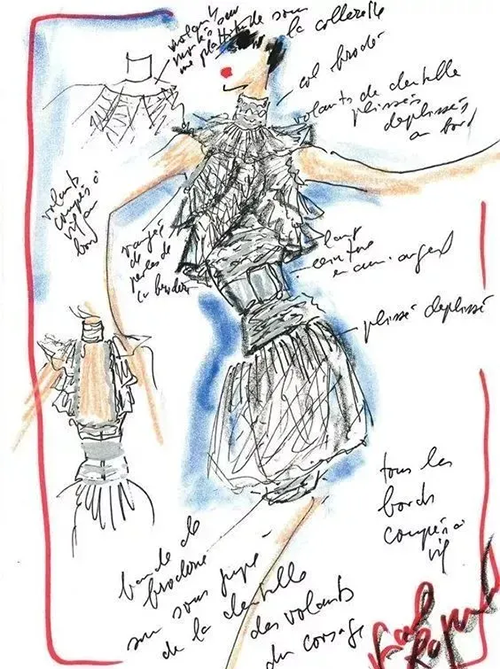 volants
montés sur
une platitude sous
la collerette
col brodé
volants de dentelle
plissés
deplissés
au bord
volants
coupés à
vif au
bord
rangées
de
perles de
broderie
haut
ceinture
en cuir argent
plissé deplissé
tous les
bords
coupés à
vif
bande de
broderie
sur sous jupe
de la dentelle
des volants
du corsage